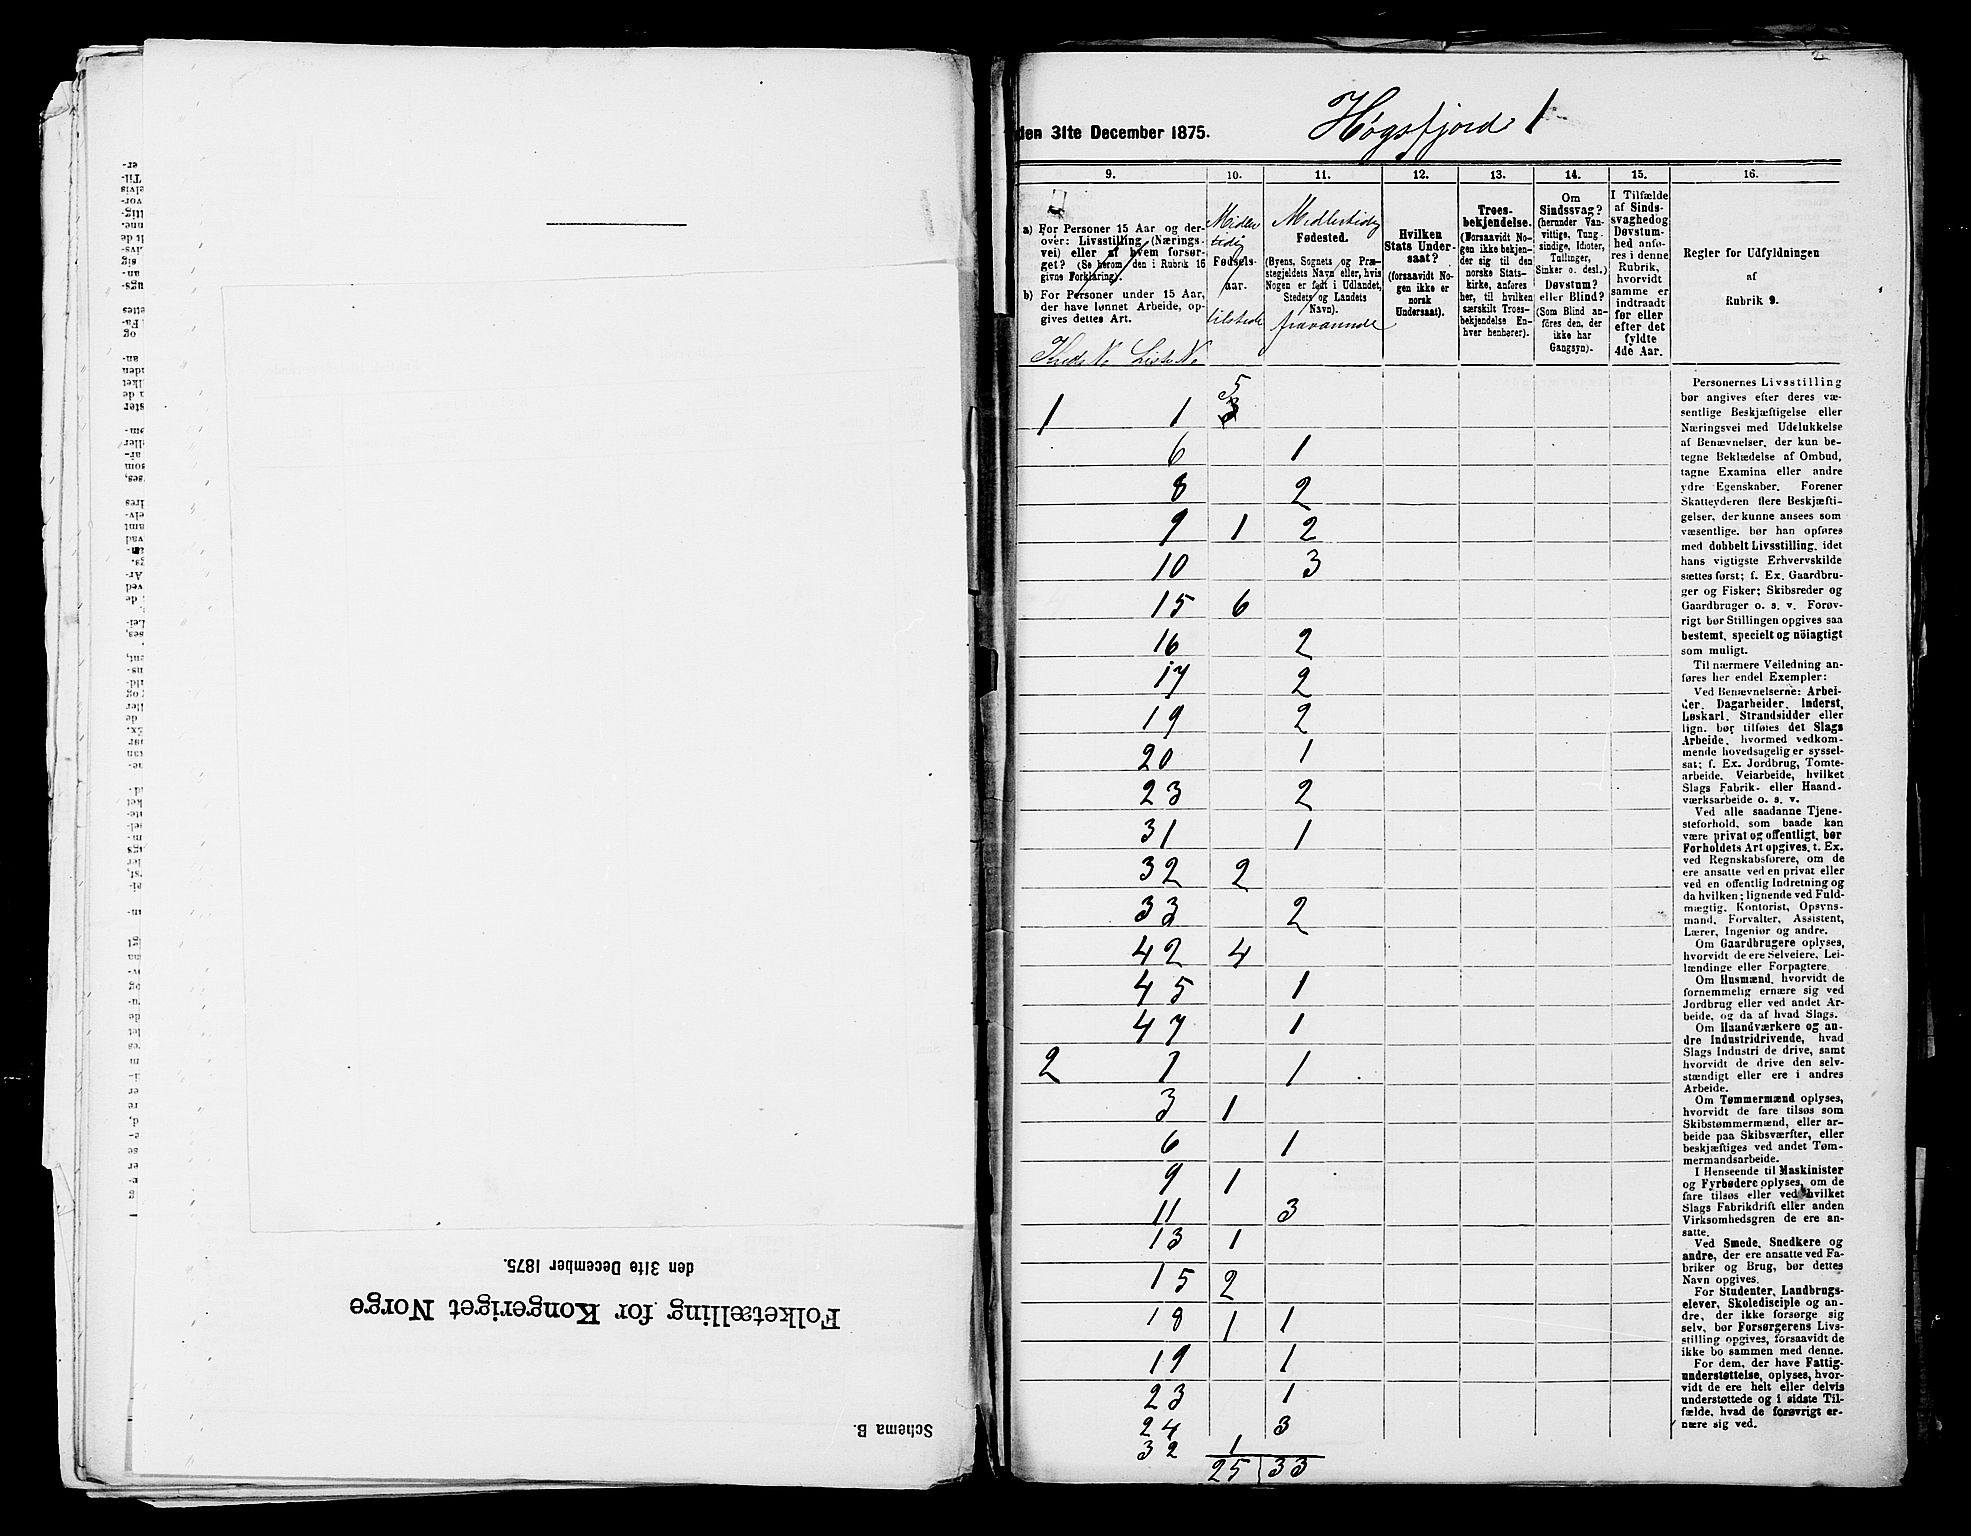 Folketælling for Kongeriget Norge
den 31te December 1875.
Schema B.
den 31te December 1875.
Høgsfjord 1
2
9.
10.
11.
12.
13.
14.
15.
16.
a) For Personer 15 Aar og der-
over: Livsstilling (Nærings-
vei) eller af hvem forsør-
get? (Se herom den i Rubrik 16
givne Forklaring).
b) For Personer under 15 Aar,
der have lønnet Arbeide, op-
gives dettes Art.
Kreds No Liste No
Midler
tidig
Fødsels-
aar.
tilstede
Midlertidig
Fødested.
(Byens, Sognets og Præ-
stegjeldets Navn eller, hvis
Nogen er født i Udlandet,
Stedets og Landets
Navn).
fraværende
Hvilken
Stats Under-
saat?
(forsaavidt No-
gen ikke er
norsk
Undersaat).
Troes-
bekjendelse.
(Forsaavidt No-
gen ikke bekjen-
der sig til den
norske Stats-
kirke, anføres
her, til hvilken
særskilt Troes-
bekjendelse En-
hver henhører).
Om
Sindssvag?
(herunder Van-
vittige, Tung-
sindige, Idioter,
Tullinger,
Sinker o. desl.)
Døvstum?
eller Blind?
(Som Blind an-
føres den, der
ikke har
Gangsyn).
I Tilfælde
af Sinds-
svaghed og
Døvstum-
hed anfø-
res i denne
Rubrik,
hvorvidt
samme er
indtraadt
før eller
efter det
fyldte
4de Aar.
Regler for Udfyldningen
af
Rubrik 9.
5
1 1 3
6 1
8 2
9 1 2
10 3
15 6
16 2
17 2
19 2
20 1
23 2
31 1
32 2
33 2
42 4
45 1
47 1
2 1 1
3 1
6 1
9 1
11 3
13 1
15 2
18 1 1
19 1
23 1
24 3
32 1
25 33
Personernes Livsstilling
bør angives efter deres væ-
sentlige Beskjæftigelse eller
Næringsvei med Udelukkelse
af Benævnelser, der kun be-
tegne Beklædelse af Ombud,
tagne Examina eller andre
ydre Egenskaber. Forener
Skatteyderen flere Beskjæfti-
gelser, der kunne ansees som
væsentlige, bør han opføres
med dobbelt Livsstilling, idet
hans vigtigste Erhvervskilde
sættes først; f. Ex. Gaardbru-
ger og Fisker; Skibsreder og
Gaardbruger o. s. v. Forøv-
rigt bør Stillingen opgives saa
bestemt, specielt og nøiagtigt
som muligt.
Til nærmere Veiledning an-
føres her endel Exempler:
Ved Benævnelserne: Arbei-
der, Dagarbeider, Inderst,
Løskarl, Strandsidder eller
lign. bør tilføies det Slags
Arbeide, hvormed vedkom-
mende hovedsagelig er syssel-
sat; f. Ex. Jordbrug, Tomte-
arbeide, Veiarbeide, hvilket
Slags Fabrik- eller Haand-
værksarbeide o. s. v.
Ved alle saadanne Tjene-
steforhold, som baade kan
være privat og offentligt, bør
Forholdets Art opgives, t. Ex.
ved Regnskabsførere, om de
ere ansatte ved en privat eller
ved en offentlig Indretning og
da hvilken; lignende ved Fuld-
mægtig, Kontorist, Opsyns-
mand, Forvalter, Assistent,
Lærer, Ingeniør og andre.
Om Gaardbrugere oplyses,
hvorvidt de ere Selveiere, Lei-
lændinge eller Forpagtere.
Om Husmænd, hvorvidt de
fornemmelig ernære sig ved
Jordbrug eller ved andet Ar-
beide, og da af hvad Slags.
Om Haandværkere og an-
dre Industridrivende, hvad
Slags Industri de drive, samt
hvorvidt de drive den selv-
stændigt eller ere i andres
Arbeide.
Om Tømmermænd oplyses,
hvorvidt de fare tilsøs som
Skibstømmermænd, eller ar-
beide paa Skibsværfter, eller
beskjæftiges ved andet Tøm-
mermandsarbeide.
I Henseende til Maskinister
og Fyrbødere oplyses, om de
fare tilsøs eller ved hvilket
Slags Fabrikdrift eller anden
Virksomhedsgren de ere an-
satte.
Ved Smede, Snedkere og
andre, der ere ansatte ved Fa-
briker og Brug, bør dettes
Navn opgives.
For Studenter, Landbrugs-
elever, Skoledisciple og an-
dre, der ikke forsørge sig
selv, bør Forsørgerens Livs-
stilling opgives, forsaavidt de
ikke bo sammen med denne.
For dem, der have Fattig-
understøttelse, oplyses, hvor-
vidt de ere helt eller delvis
understøttede og i sidste Til-
fælde, hvad de forøvrigt er-
nære sig ved.